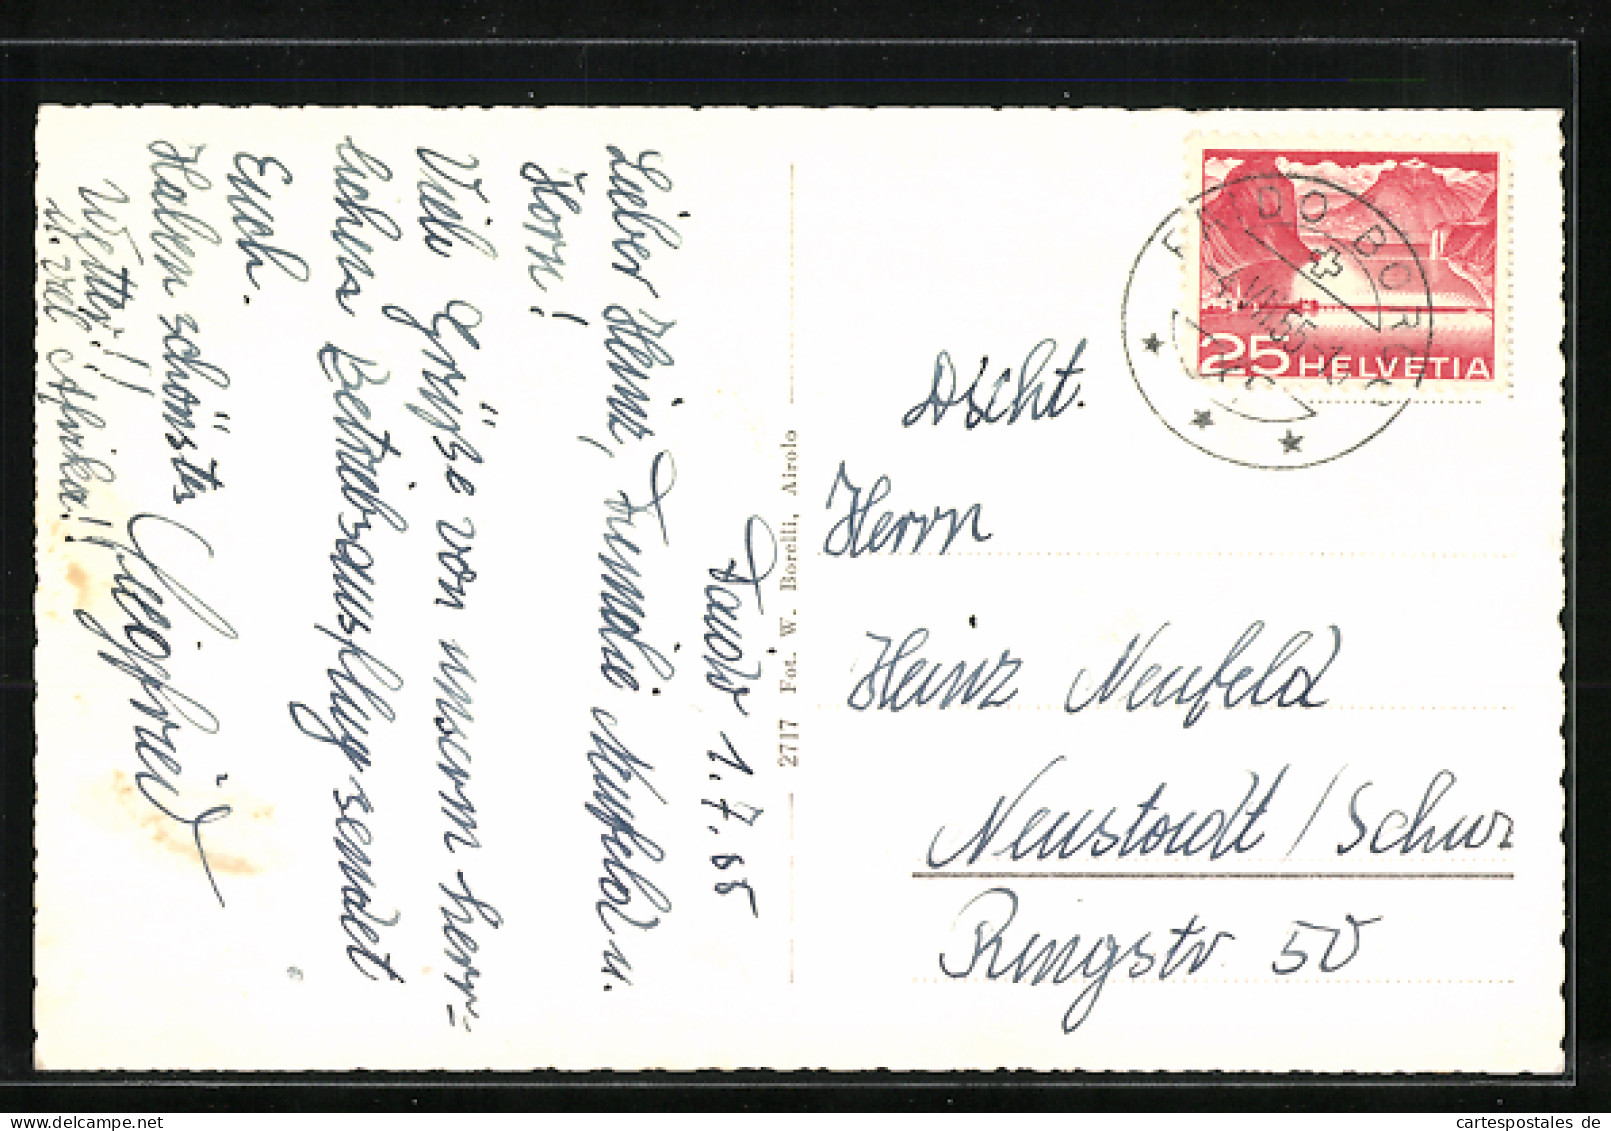 Faido 1.7.55
Lieber Heinz, Familie Neufeld u.
Horn!
Viele Grüsse von unserm herr=
lichen Betriebsausflug sendet
Euch.
Haben schönstes
Wetter!!
Siegfried
2717 Fot. W. Borelli, Airolo
FAIDO BORGO
VII.55
25 HELVETIA
Dscht.
Herrn
Heinz Neufeld
Neustadt / Schwz
Ringstr. 50
cartespostales de